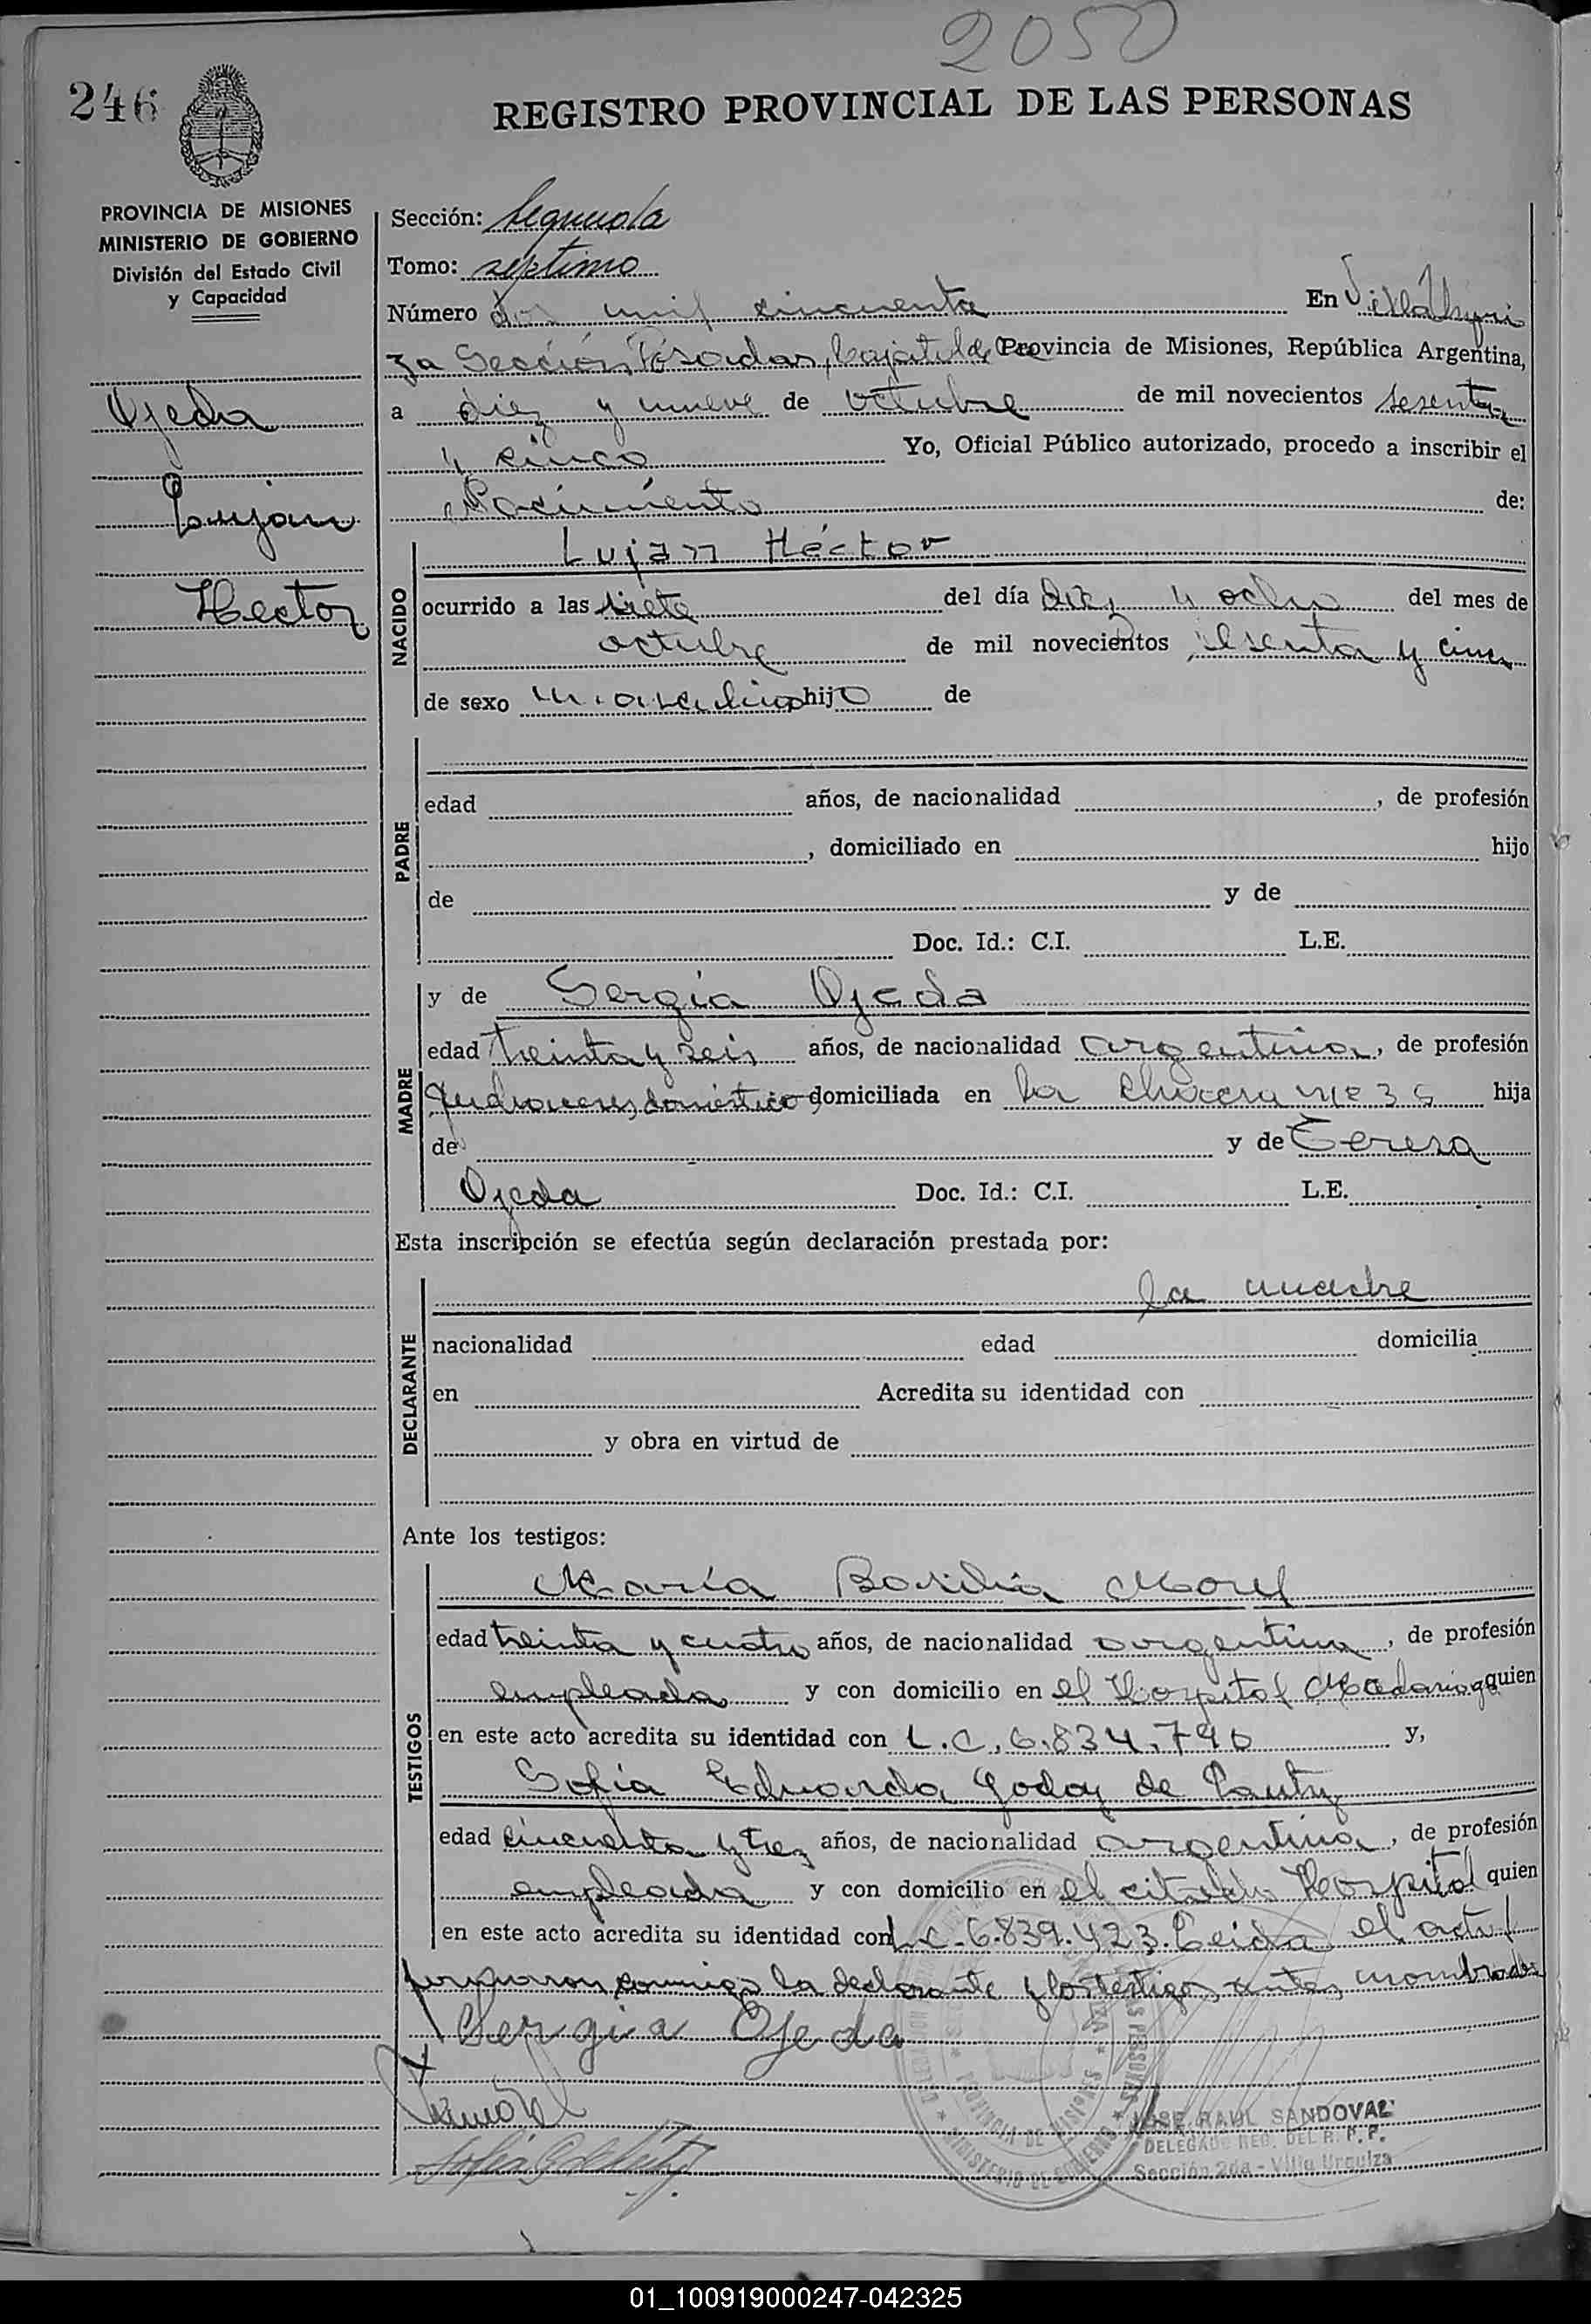 2050
246
REGISTRO PROVINCIAL DE LAS PERSONAS
PROVINCIA DE MISIONES
MINISTERIO DE GOBIERNO
División del Estado Civil
y Capacidad
Ojeda
Lujan
Hector
Sección: Segunda
Tomo: septimo
Número dos mil cincuenta En Villa Urqui
za Sección Posadas, Capital de Provincia de Misiones, República Argentina,
a diez y nueve de octubre de mil novecientos sesenta
y cinco Yo, Oficial Público autorizado, procedo a inscribir el
Nacimiento de:
NACIDO
Lujan Héctor
ocurrido a las siete del día diez y ocho del mes de
octubre de mil novecientos sesenta y cinco
de sexo masculino hijo de
PADRE
edad años, de nacionalidad , de profesión
, domiciliado en hijo
de y de
Doc. Id.: C.I. L.E.
MADRE
y de Sergia Ojeda
edad treinta y seis años, de nacionalidad argentina, de profesión
quehaceres doméstico domiciliada en la Chacra hija
de y de Teresa
Ojeda Doc. Id.: C.I. L.E.
Esta inscripción se efectúa según declaración prestada por:
DECLARANTE
la madre
nacionalidad edad domicilia
en Acredita su identidad con
y obra en virtud de
Ante los testigos:
TESTIGOS
María Basilia Morel
edad treinta y cuatro años, de nacionalidad argentina, de profesión
empleada y con domicilio en el Hospital Madariaga quien
en este acto acredita su identidad con L.C. 6.834.790 y,
Sofia Eduarda Godoy de
edad cincuenta y tres años, de nacionalidad argentina, de profesión
empleada y con domicilio en el citado Hospital quien
en este acto acredita su identidad con L.C. 6.839.423. Leida el acta
firmaron conmigo la declarante y los testigos antes nombrados
Sergia Ojeda
JOSE RAUL SANDOVAL
DELEGADO REG. DEL R. P. P.
Sección 2da - Villa Urquiza
01_100919000247-042325